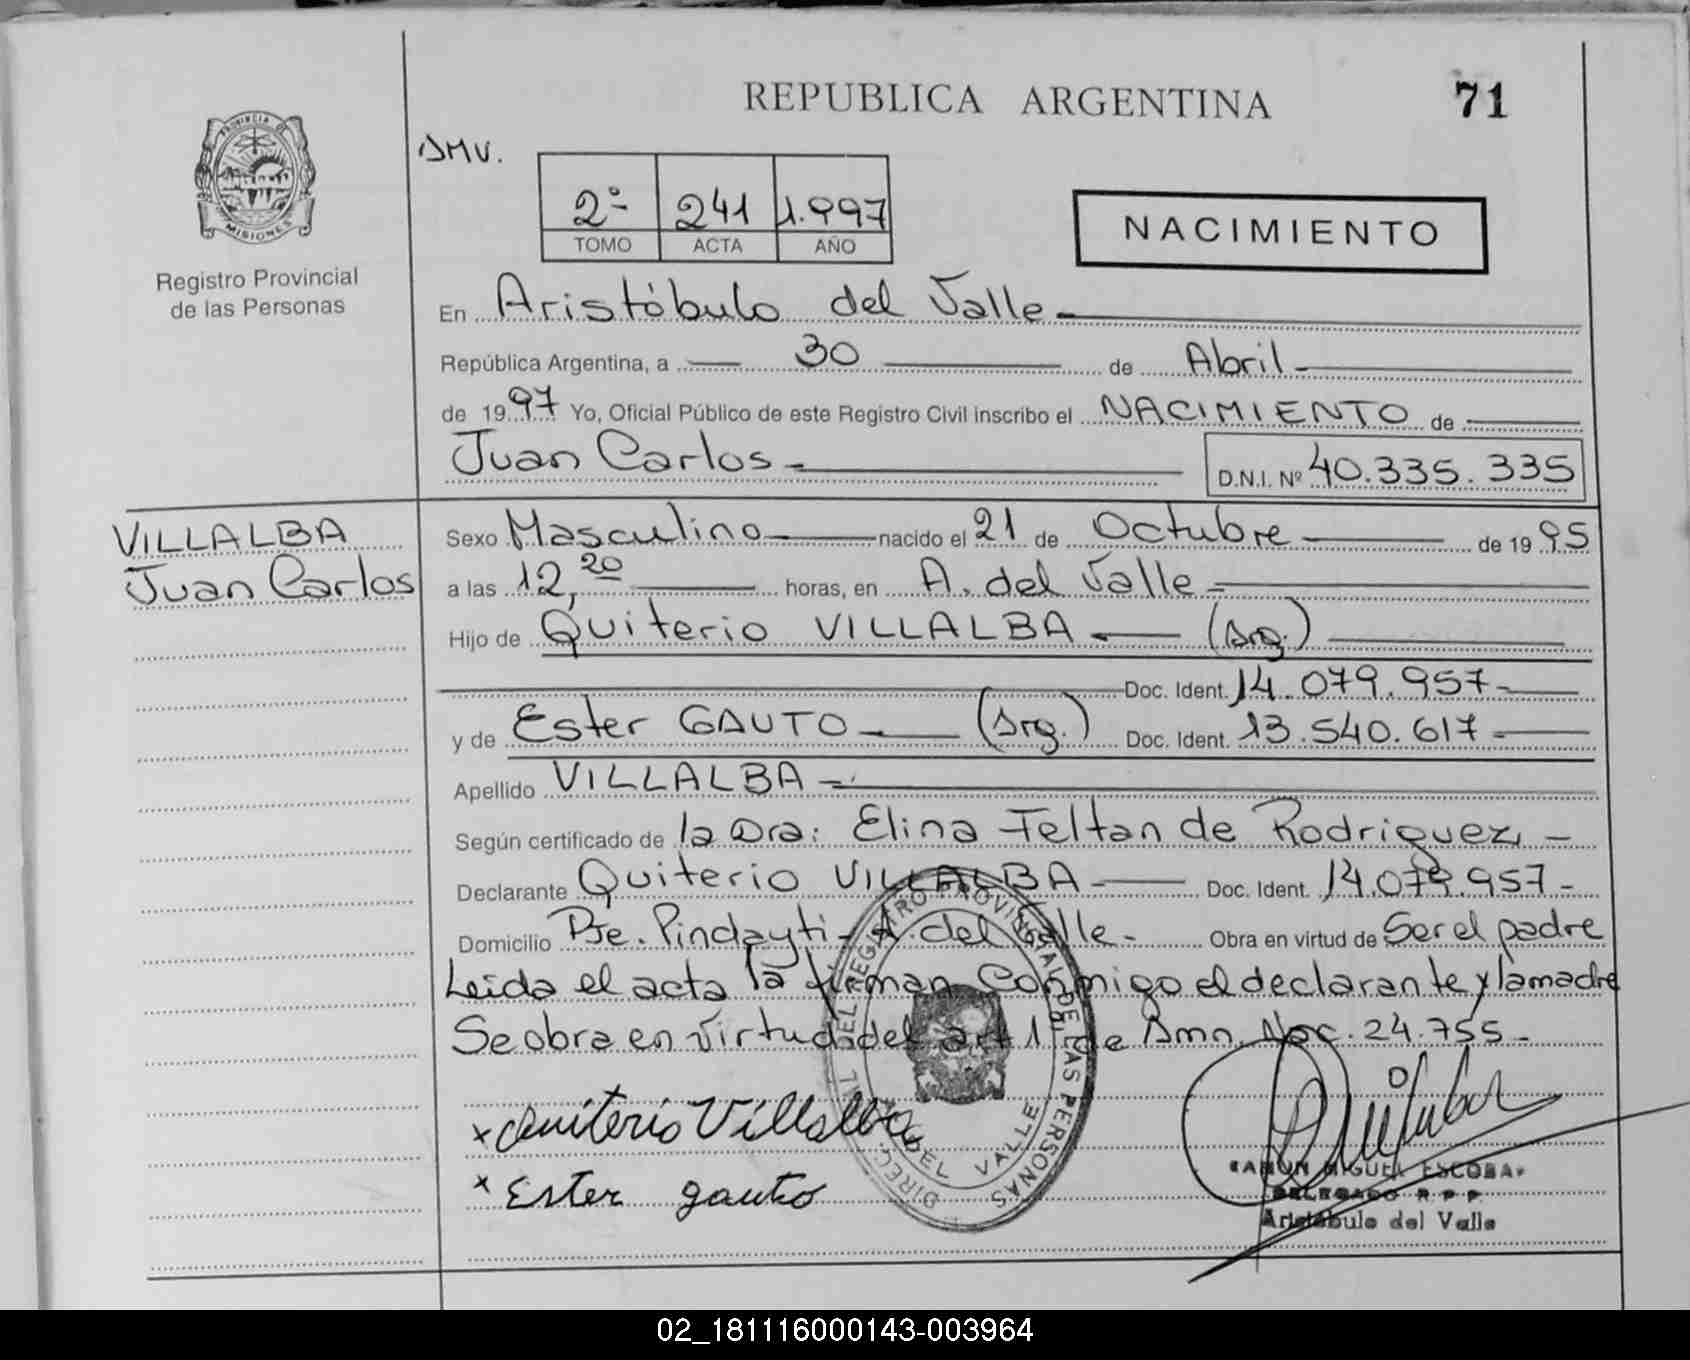 REPUBLICA ARGENTINA
71
PROVINCIA DE
MISIONES
Registro Provincial
de las Personas
2º 241 1.997
TOMO ACTA AÑO
NACIMIENTO
En Aristóbulo del Valle
República Argentina, a 30 de Abril
de 1997 Yo, Oficial Público de este Registro Civil inscribo el NACIMIENTO de
Juan Carlos D.N.I. Nº 40.335.335
VILLALBA
Juan Carlos
Sexo Masculino nacido el 21 de Octubre de 1995
a las 12,20 horas, en A. del Valle
Hijo de Quiterio VILLALBA (Arg.)
Doc. Ident. 14.079.957
y de Ester GAUTO (Arg.) Doc. Ident. 13.540.617
Apellido VILLALBA
Según certificado de la Dra: Elina Feltan de Rodriguez
Declarante Quiterio VILLALBA Doc. Ident. 14.079.957
Domicilio Pje. Pindayti - A. del Valle Obra en virtud de Ser el padre
Leida el acta la firman Conmigo el declarante y la madre
Se obra en virtud del art 1º de Amn. Nac. 24.755
x Quiterio Villalba
x Ester gauto
DIREC. DEL REGISTRO PROVINCIAL DE LAS PERSONAS
DEL VALLE
RAMON MIGUEL ESCOBAR
DELEGADO R.P.P.
Aristóbulo del Valle
02_181116000143-003964